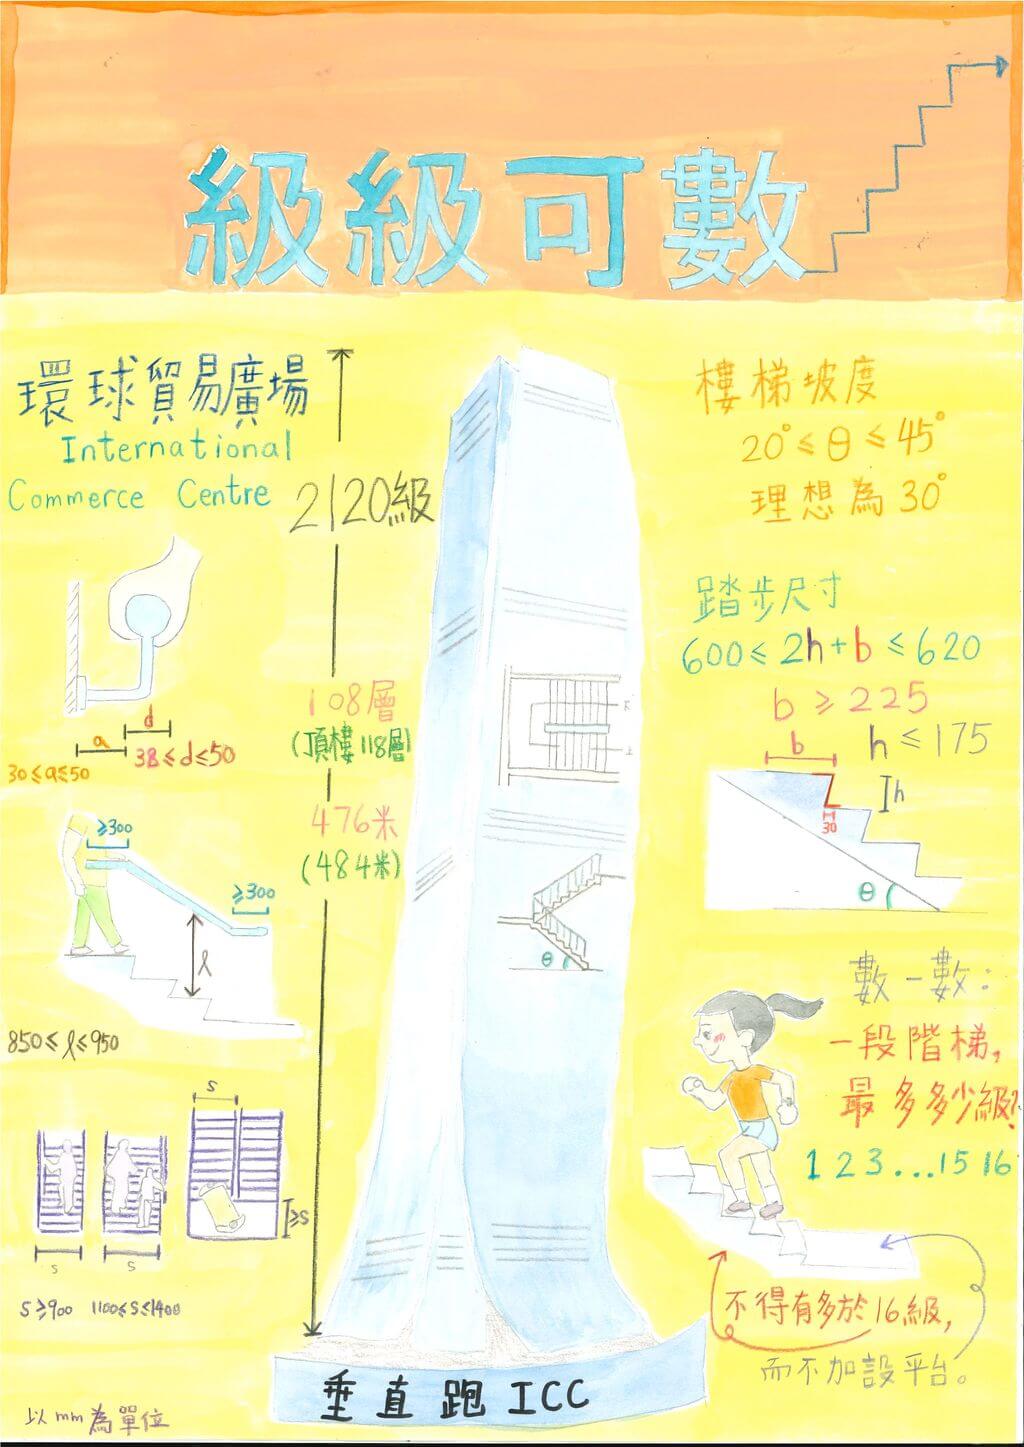 級級可數
環球貿易廣場
International
Commerce Centre
2120級
108層
(頂樓118層)
476米
(484米)
d
a
38≤d≤50
30≤a≤50
≥300
≥300
l
850≤l≤950
s
≥s
s
s
s≥900
1100≤s≤1400
以mm為單位
θ
樓梯坡度
20°≤θ≤45°
理想為30°
踏步尺寸
600≤2h+b≤620
b≥225
h≤175
b
h
30
θ
數一數:
一段階梯,
最多多少級?
1 2 3...15 16
不得有多於16級,
而不加設平台。
垂直跑ICC